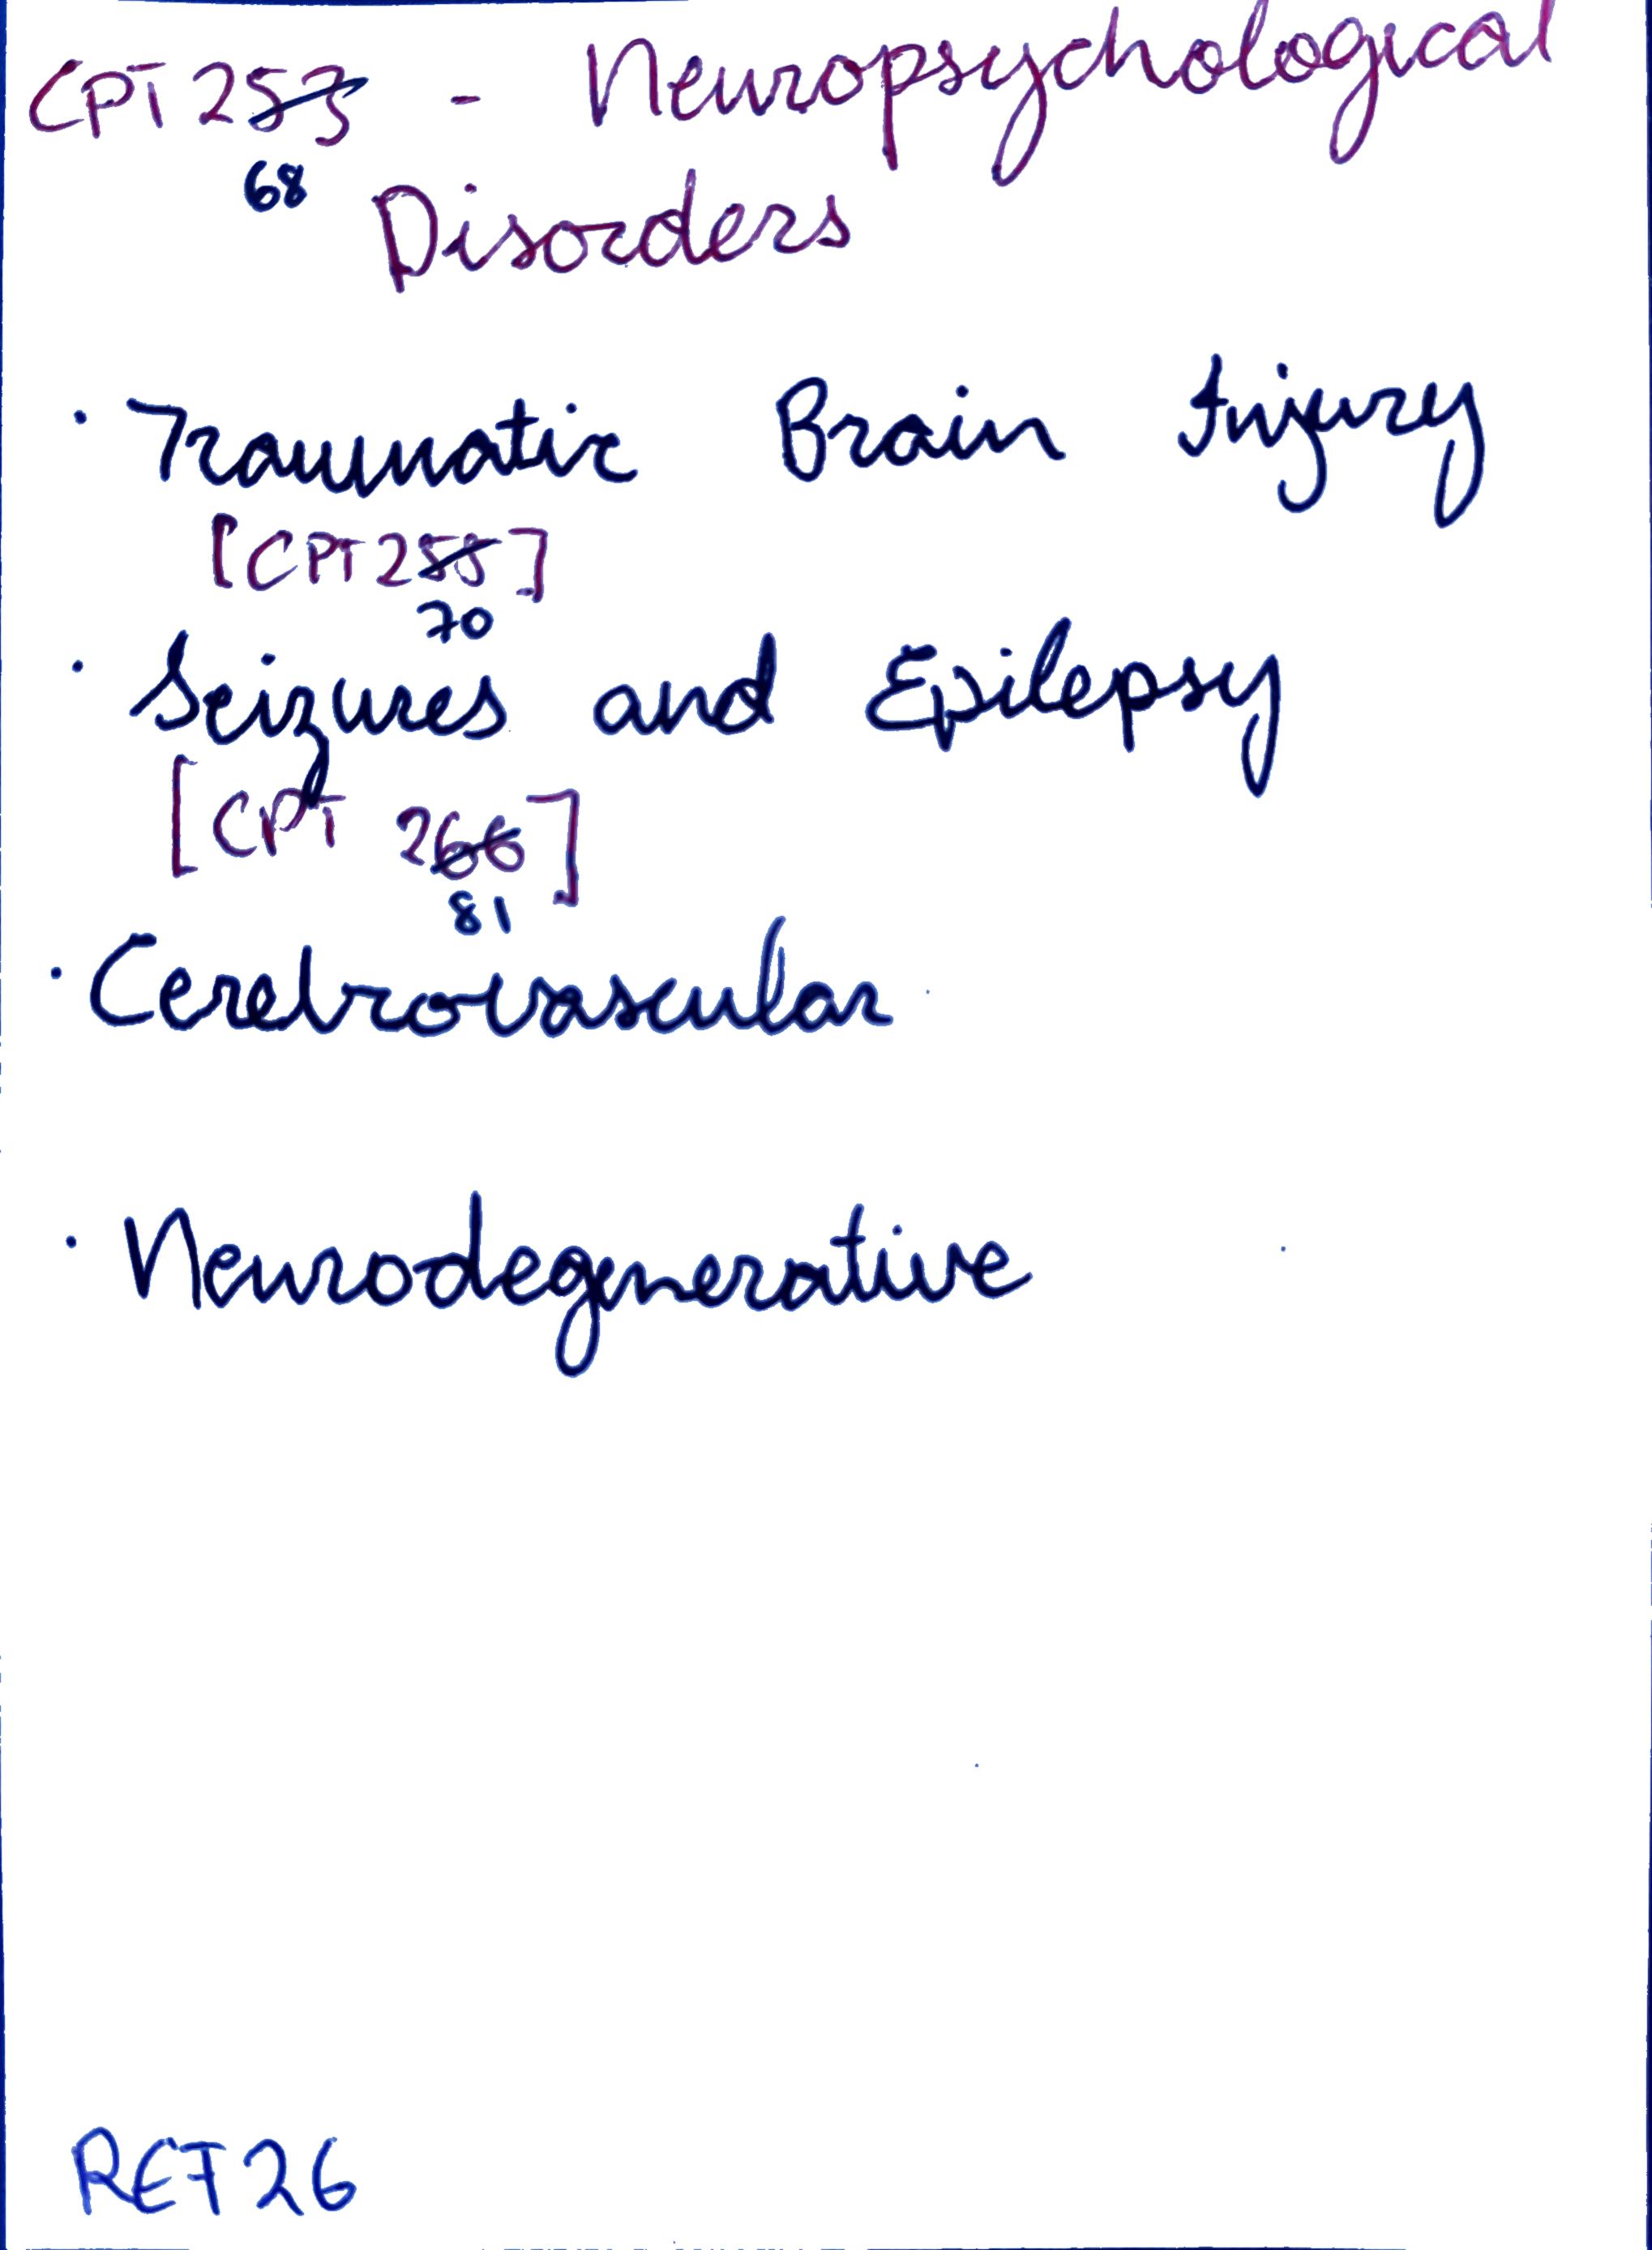 CPT 253 - Neuropsychological
68
Disorders
· Traumatic Brain Injury
[CPT 255]
70
· Seizures and Epilepsy
[CPT 266]
81
· Cerebrovascular
· Neurodegenerative
REF 26